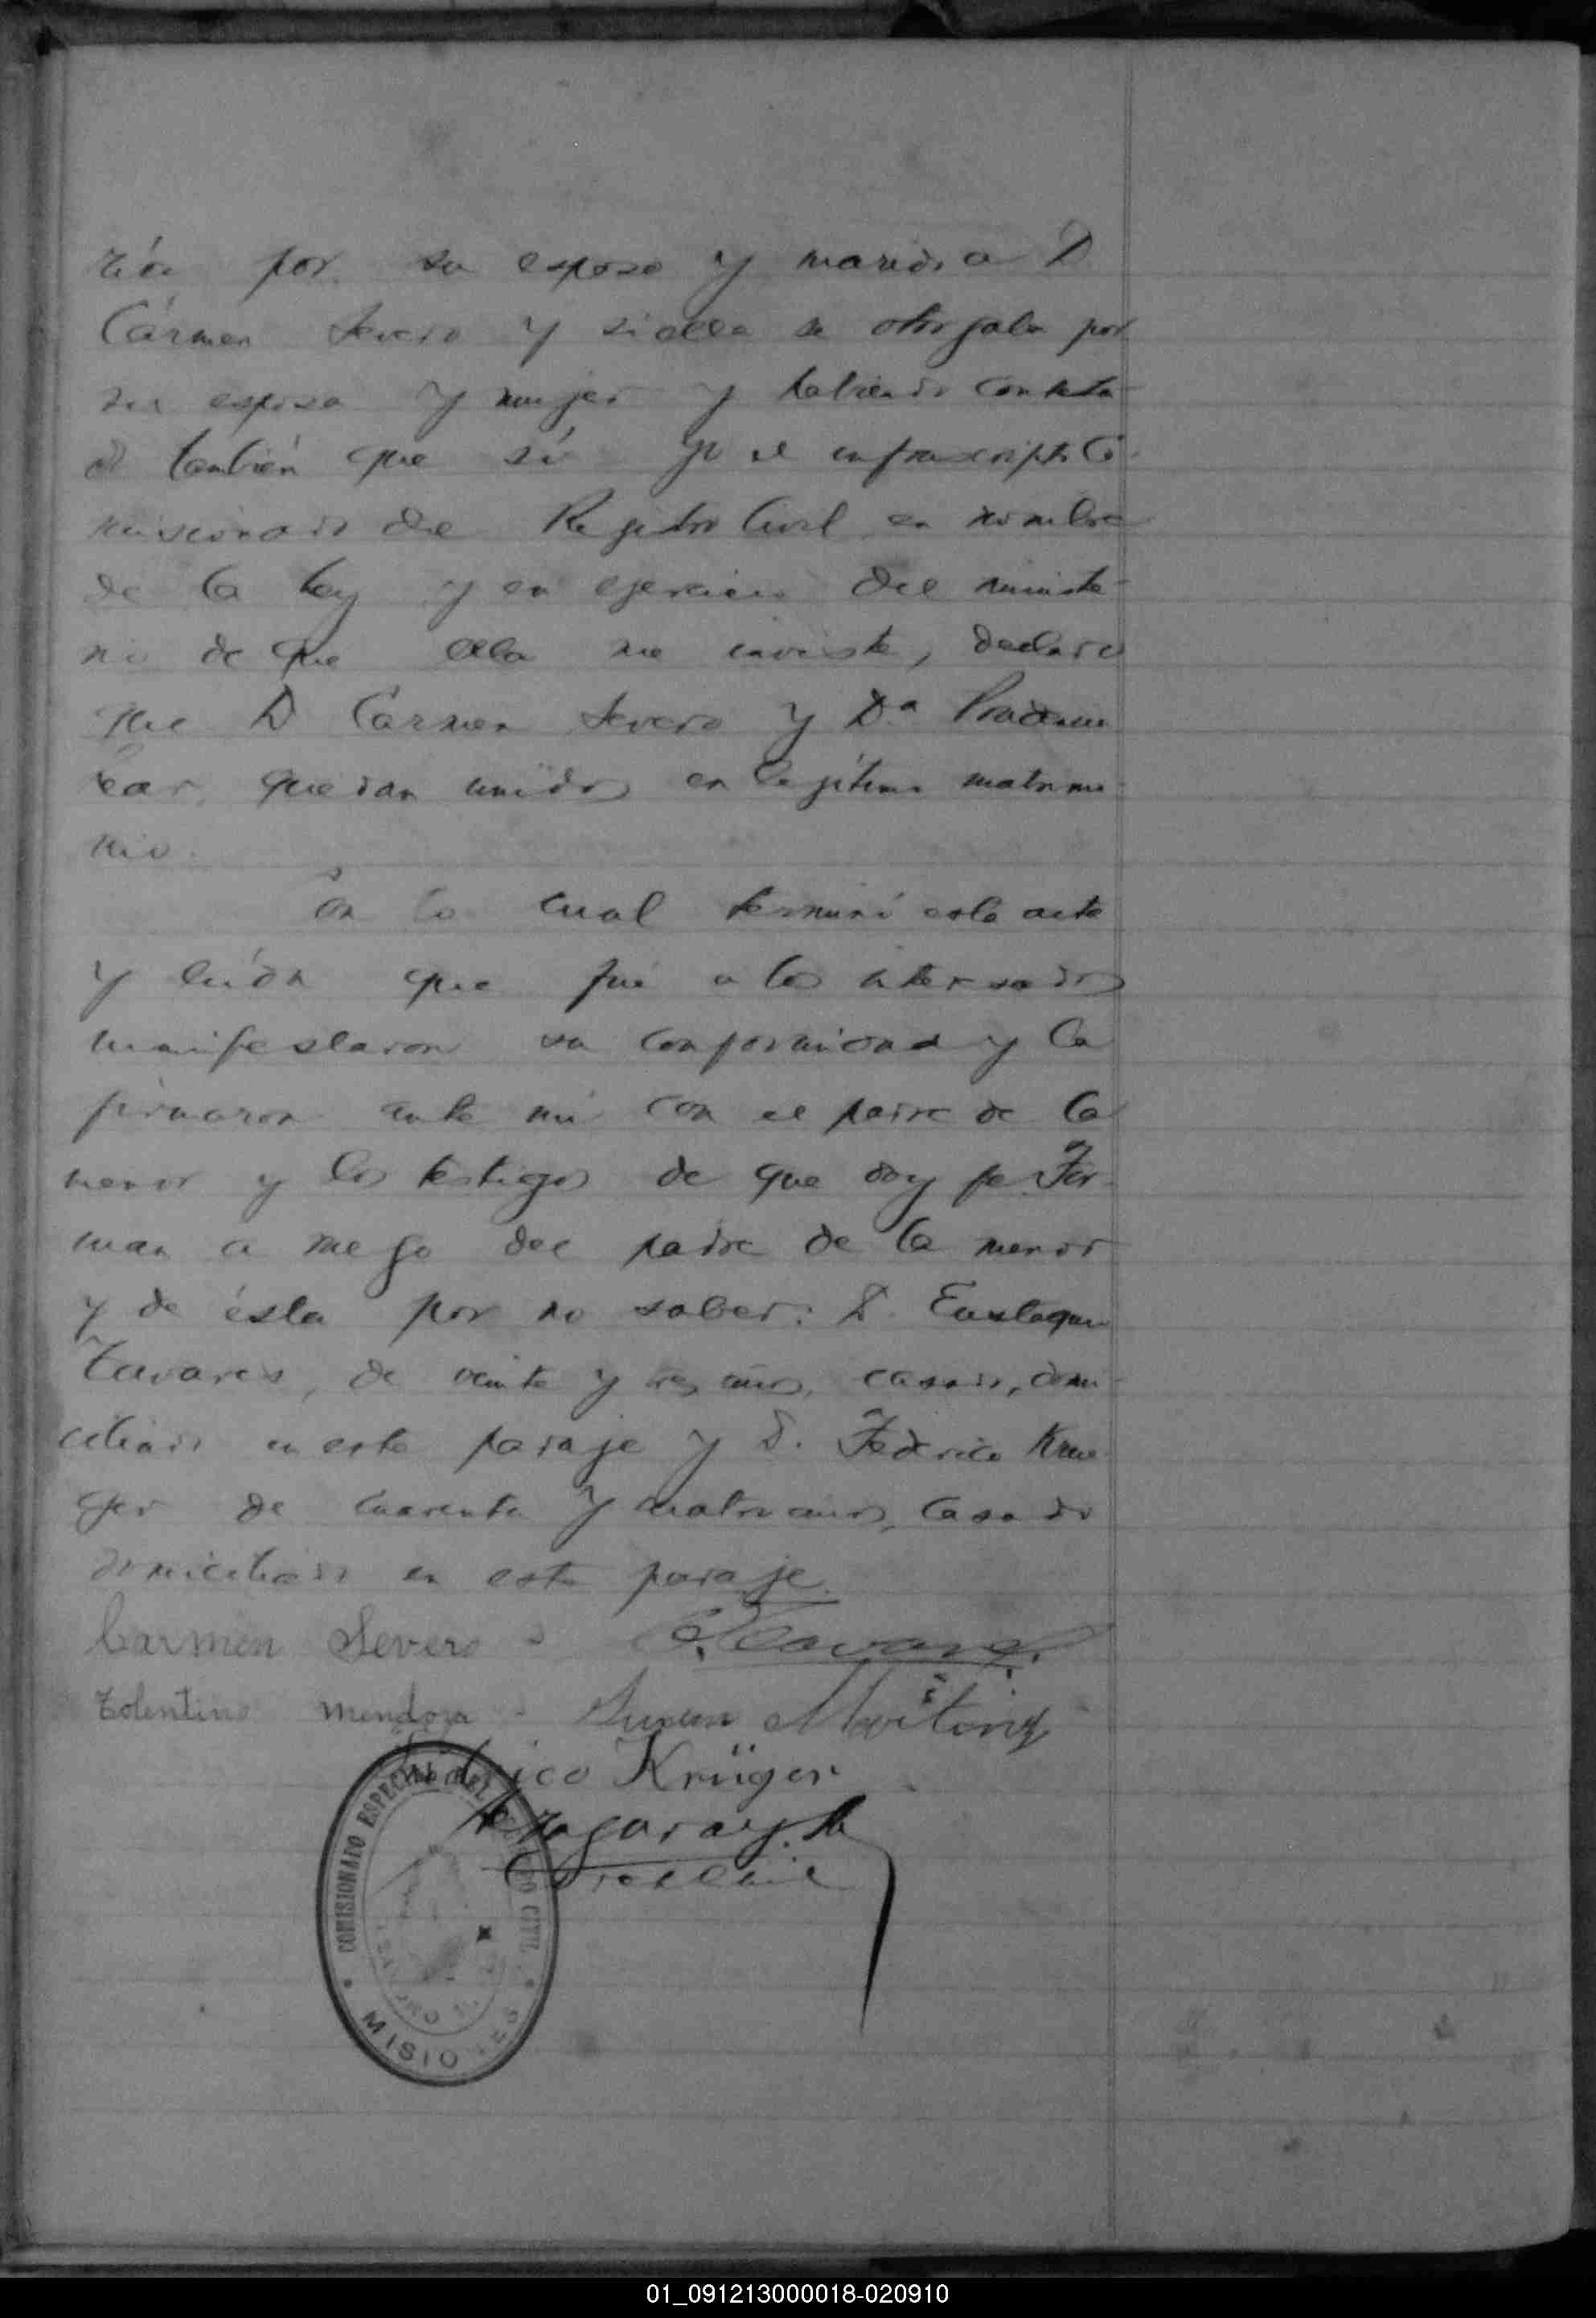 por su esposo y marido a D
Cármen Severo y si ella se otorgaba por
su esposa y mujer y habiendo contesta-
do también que sí yo el infrascripto Co-
misionado del Registro Civil en nombre
de la ley y en ejercicio del ministe-
rio de que ella me inviste, declaro
que D Carmen Severo y Da
quedan unidos en legítimo matrimo-
nio.
Con lo cual terminé esta acta
y leída que fué a los interesados
manifestaron su conformidad y la
firmaron ante mí con el padre de la
menor y los testigos de que doy fe. Fir-
man a ruego del padre de la menor
y de ésta por no saber: D. Eustaquio
Tavares, de veinte y tres años, casado, domi-
ciliado en este paraje y D. Federico Krue-
ger de cuarenta y cuatro años, casado
domiciliado en este paraje.
Carmen Severo E. Tavares.
Tolentino Mendoza
Federico Krüger
COMISIONADO ESPECIAL DEL REGISTRO CIVIL
MISIONES
01_091213000018-020910